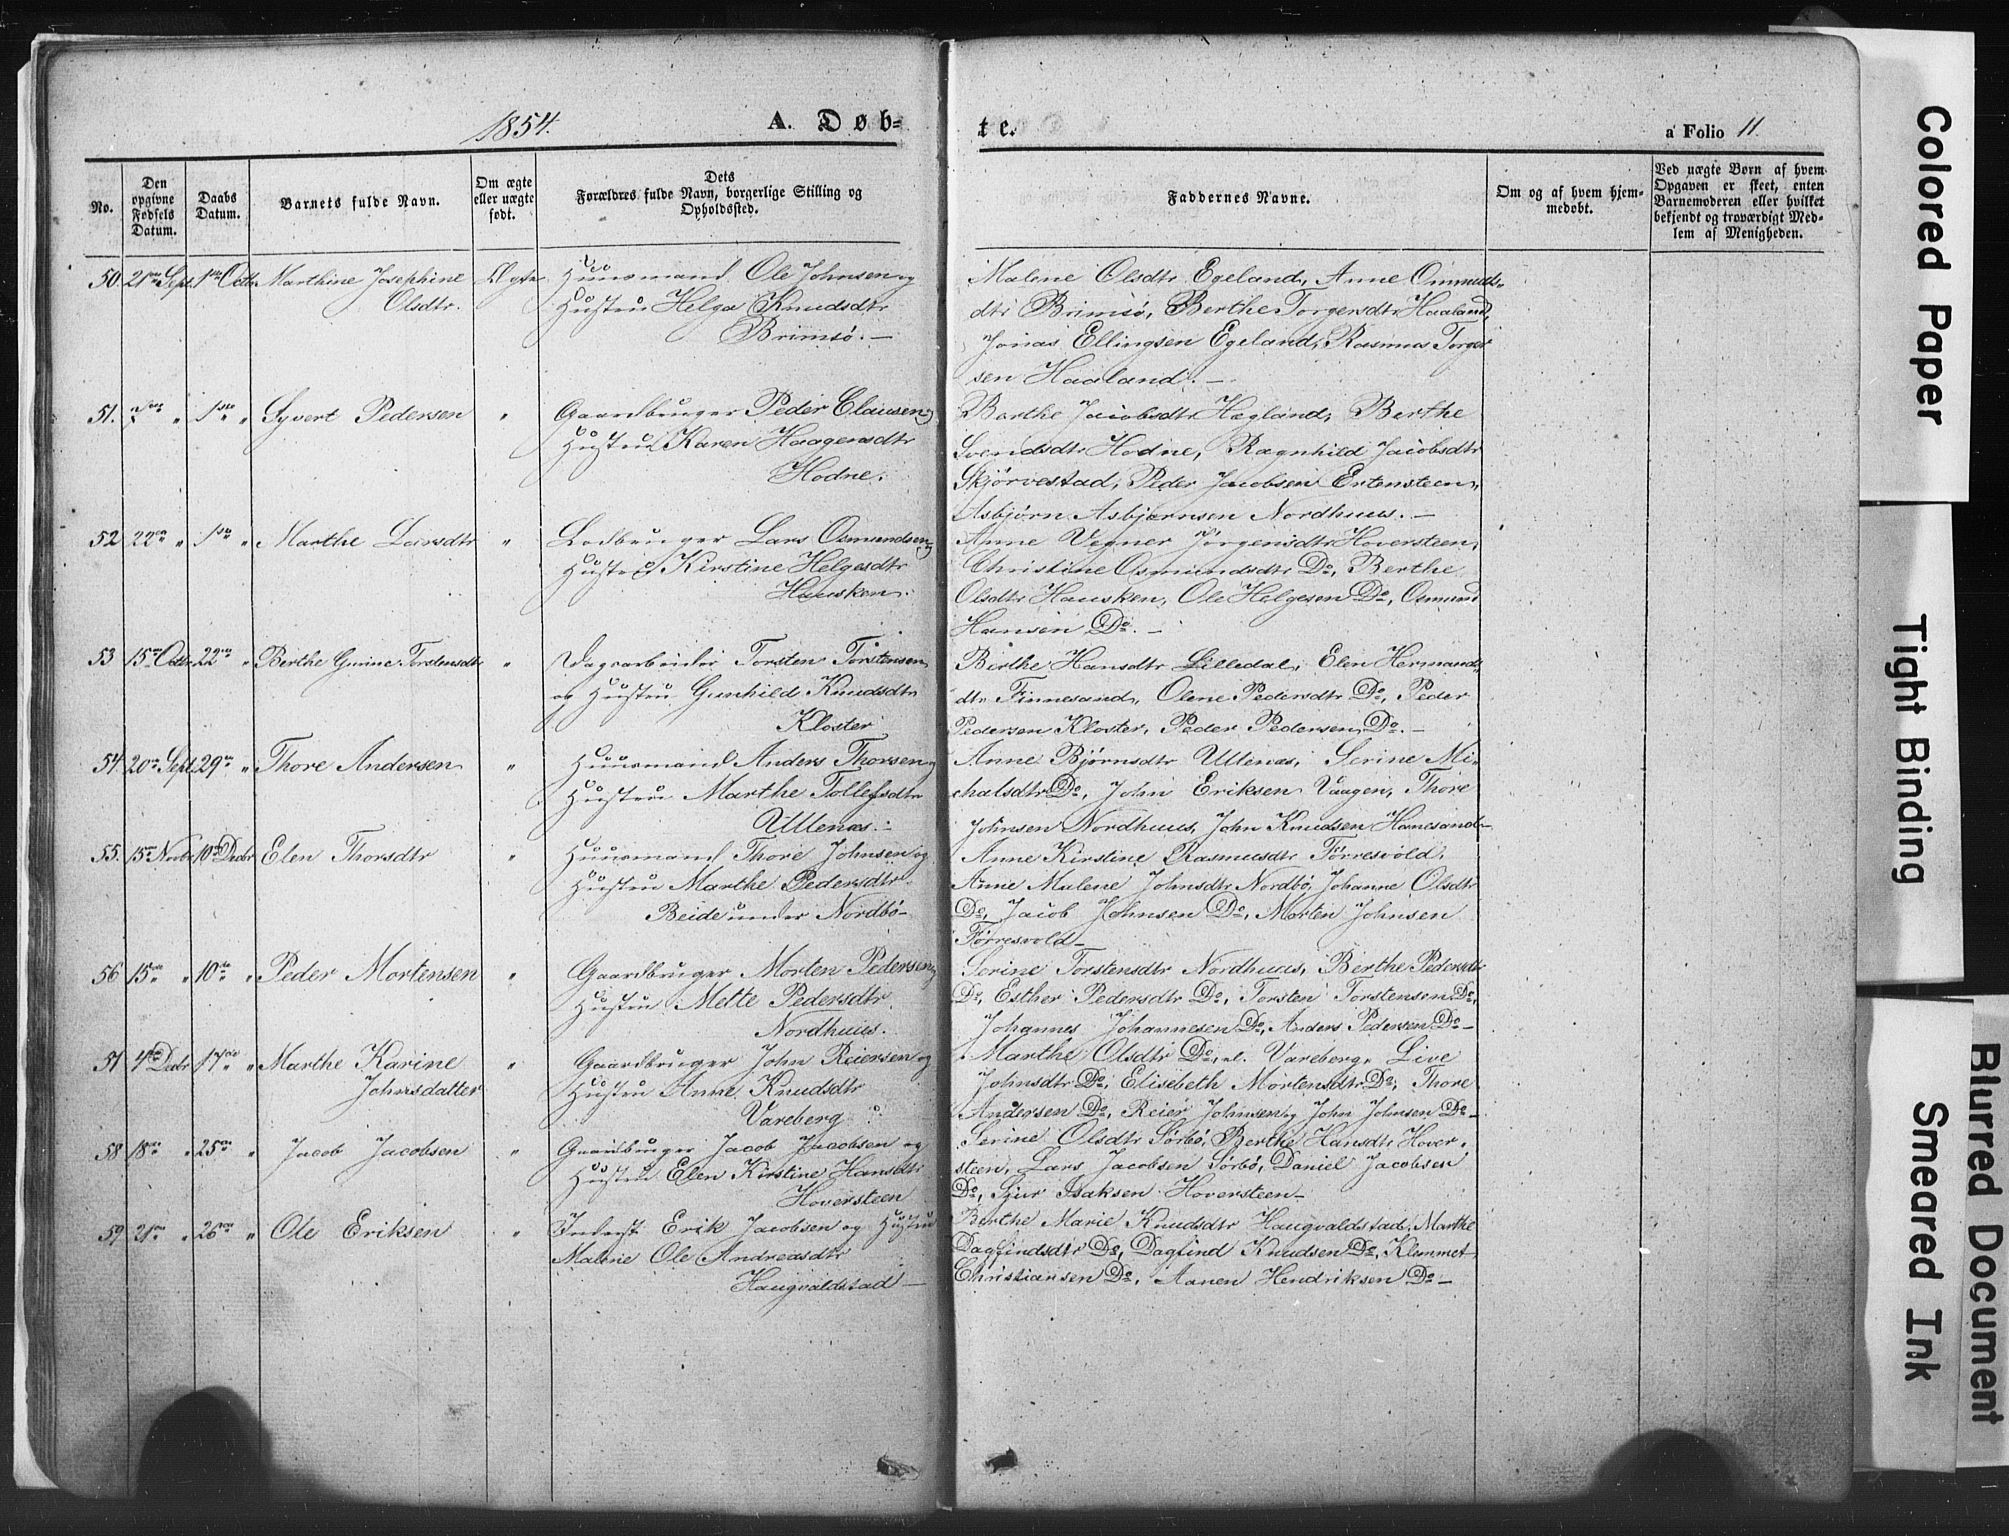 1854.
A. Døb-
te.
a Folio 11.
No.
Den
opgivne
Fødsels
Datum.
Daabs
Datum.
Barnets fulde Navn.
Om ægte
eller uægte
født.
Dets
Forældres fulde Navn, borgerlige Stilling og
Opholdssted.
Faddernes Navne.
Om og af hvem hjem-
medøbt.
Ved uægte Børn af hvem
Opgaven er skeet, enten
Barnemoderen eller hvilket
bekjendt og troværdigt Med-
lem af Menigheden.
50. 21de Sept. 1ste Octbr Marthine Josephine Ægte Huusmand Ole Johnsen og
Olsdtr. Hustru Helga Knudsdtr
Brimsø. —
Malene Olsdtr Egeland, Anne Ommunds-
dtr Brimsø, Berthe Torgersdtr Haaland,
Jonas Ellingsen Egeland, Rasmus Torger
sen Haaland. —
51. 7de " 1ste " Syvert Pedersen " Gaardbruger Peder Clausen og
Hustru Karen Haagensdtr
Hodne.
Barthe Jacobsdtr Hægland, Berthe
Svendsdtr Hodne, Ragnhild Jacobsdtr
Skjørvestad, Peder Jacobsen Ertensteen,
Asbjørn Asbjørnsen Nordhuus. —
52 22de " 1ste " Marthe Larsdtr " Lodbruger Lars Osmundsen og
Hustru Kirstine Helgesdtr
Hausken.
Anne Vegner Jørgensdtr Hoversteen,
Christine Osmundsdtr Do, Berthe
Olsdtr Hausken, Ole Helgesen Do, Osmund
Hansen Do. —
53 15de Octbr 22de " Berthe Gurine Torstensdtr " Dagsarbeider Torsten Torstensen
og Hustru Gunhild Knudsdtr
Kloster
Berthe Hansdtr Lilledal, Elen Hermands-
dtr Finnesand, Olene Pedersdtr Do, Peder
Pedersen Kloster, Peder Pedersen Do. —
54 20de Sept. 29de " Thore Andersen " Huusmand Anders Thorsen og
Hustru Marthe Tollefsdtr
Utlenæs. —
Anne Bjørnsdtr Utlenæs, Serine Mi-
chalsdtr Do, John Eriksen Vaagen, Thore
Johnsen Nordhuus, John Knudsen Hanesand —
55. 15de Novbr 10de Decbr Elen Thorsdtr " Huusmand Thore Johnsen og
Hustru Marthe Pedersdtr
Beide under Nordbø —
Anne Kirstine Rasmusdtr Førresvold,
Anne Malene Johnsdtr Nordbø, Johanne Olsdtr
Do, Jacob Johnsen Do, Morten Johnsen
Førresvold —
56 15de " 10de " Peder Mortensen " Gaardbruger Morten Pedersen og
Hustru Mette Pedersdtr
Nordhuus.
Serine Torstensdtr Nordhuus, Berthe Pedersdtr
Do, Esther Pedersdtr Do, Torsten Torstensen Do,
Johannes Johannesen Do, Anders Pedersen Do —
57 4de Decbr 17de " Marthe Karine " Gaardbruger John Reiersen og
Johnsdatter Hustru Anne Knudsdtr
Vareberg
Marthe Olsdtr Do, el. Vareberg, Live
Johnsdtr Do, Elisebeth Mortensdtr Do, Thore
Andersen Do, Reier Johnsen og John Johnsen Do —
58 18de " 25de " Jacob Jacobsen " Gaardbruger Jacob Jacobsen og
Hustru Elen Kirstine Hansdtr
Hoversteen
Serine Olsdtr Sørbø, Berthe Hansdtr Hover-
steen, Lars Jacobsen Sørbø, Daniel Jacobsen
Do, Sjur Isaksen Hoversteen —
59 21de " 26de " Ole Eriksen " Inderst Erik Jacobsen og Hustru
Malene Ole Andreasdtr
Haugvaldstad —
Berthe Marie Knudsdtr Haugvaldstad, Marthe
Dagfindsdtr Do, Dagfind Knudsen Do, Klemmet
Christiansen Do, Aanen Hendriksen Do —
Colored Paper
Tight Binding
Blurred Document
Smeared Ink